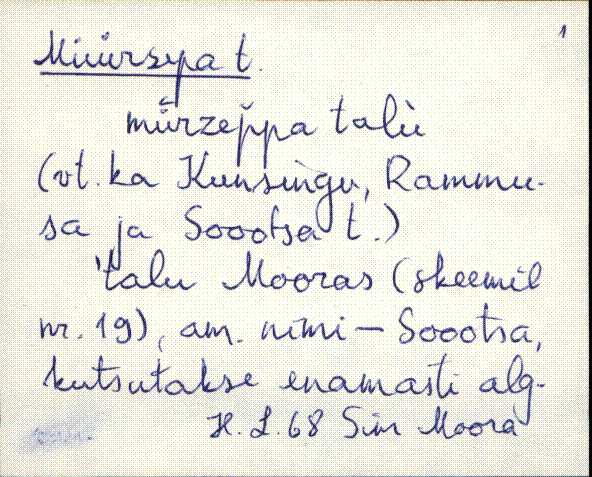 1
Müürsepa t.
mǖrzeppa talù
(vt. ka Kunsingu, Rammu-
sa ja Soootsa t.)
'talu Mooras (skeemil
nr. 19), am. nimi – Soootsa,
kutsutakse enamasti alg-
H. L. 68 Sim Moora